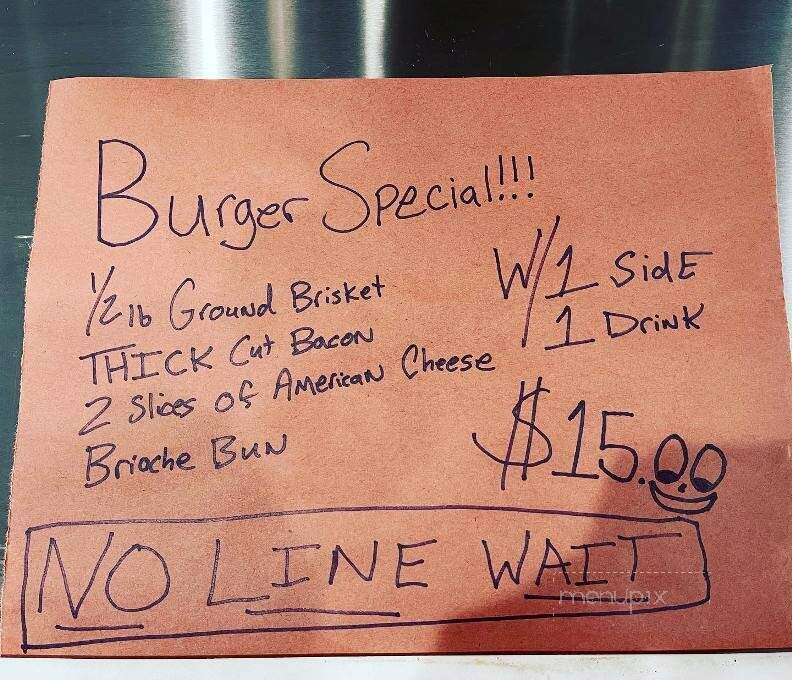 Burger Special!!!
1/2 lb Ground Brisket
THICK Cut Bacon
2 Slices of American Cheese
Brioche Bun
W/1 Side
1 Drink
$15.00
NO LINE WAIT
menupix